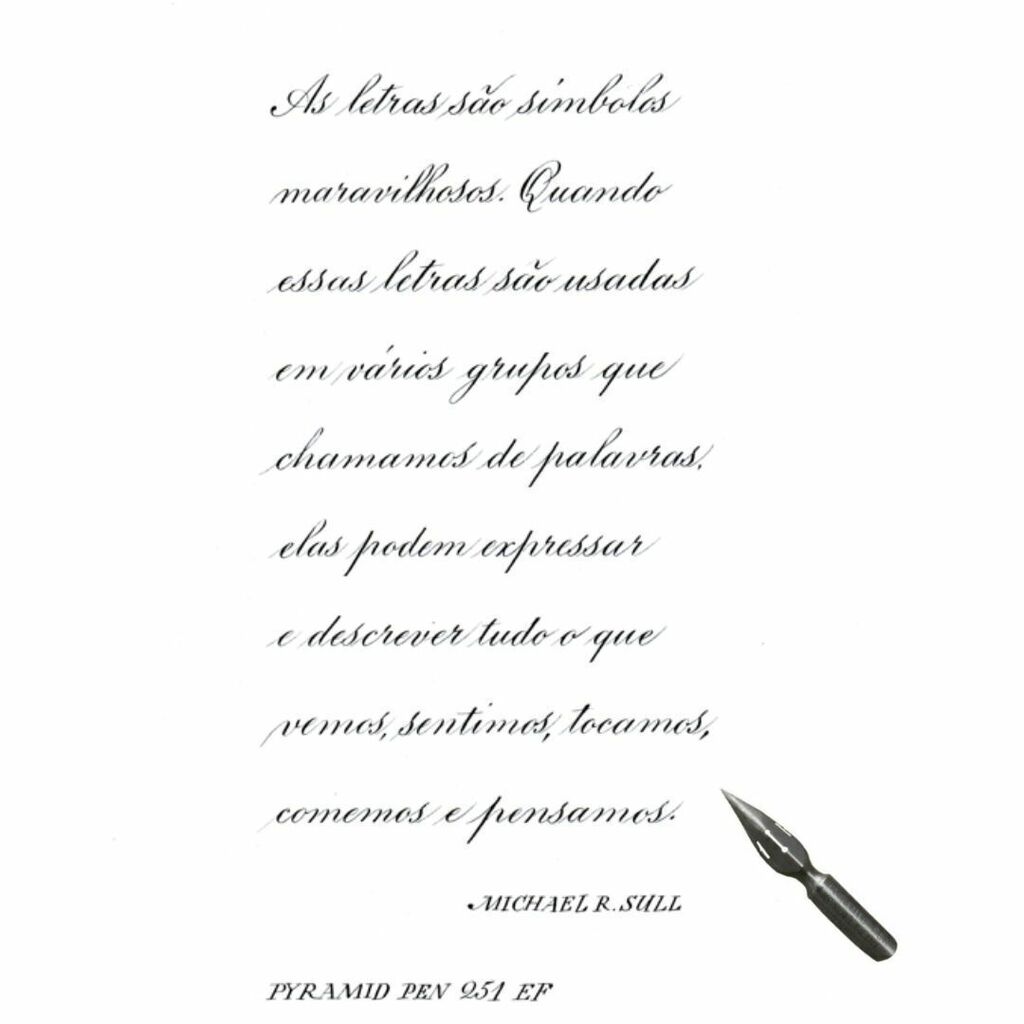 As letras são símbolos
maravilhosos. Quando
essas letras são usadas
em vários grupos que
chamamos de palavras,
elas podem expressar
e descrever tudo o que
vemos, sentimos, tocamos,
comemos e pensamos.
MICHAEL R. SULL
PYRAMID PEN 251 EF